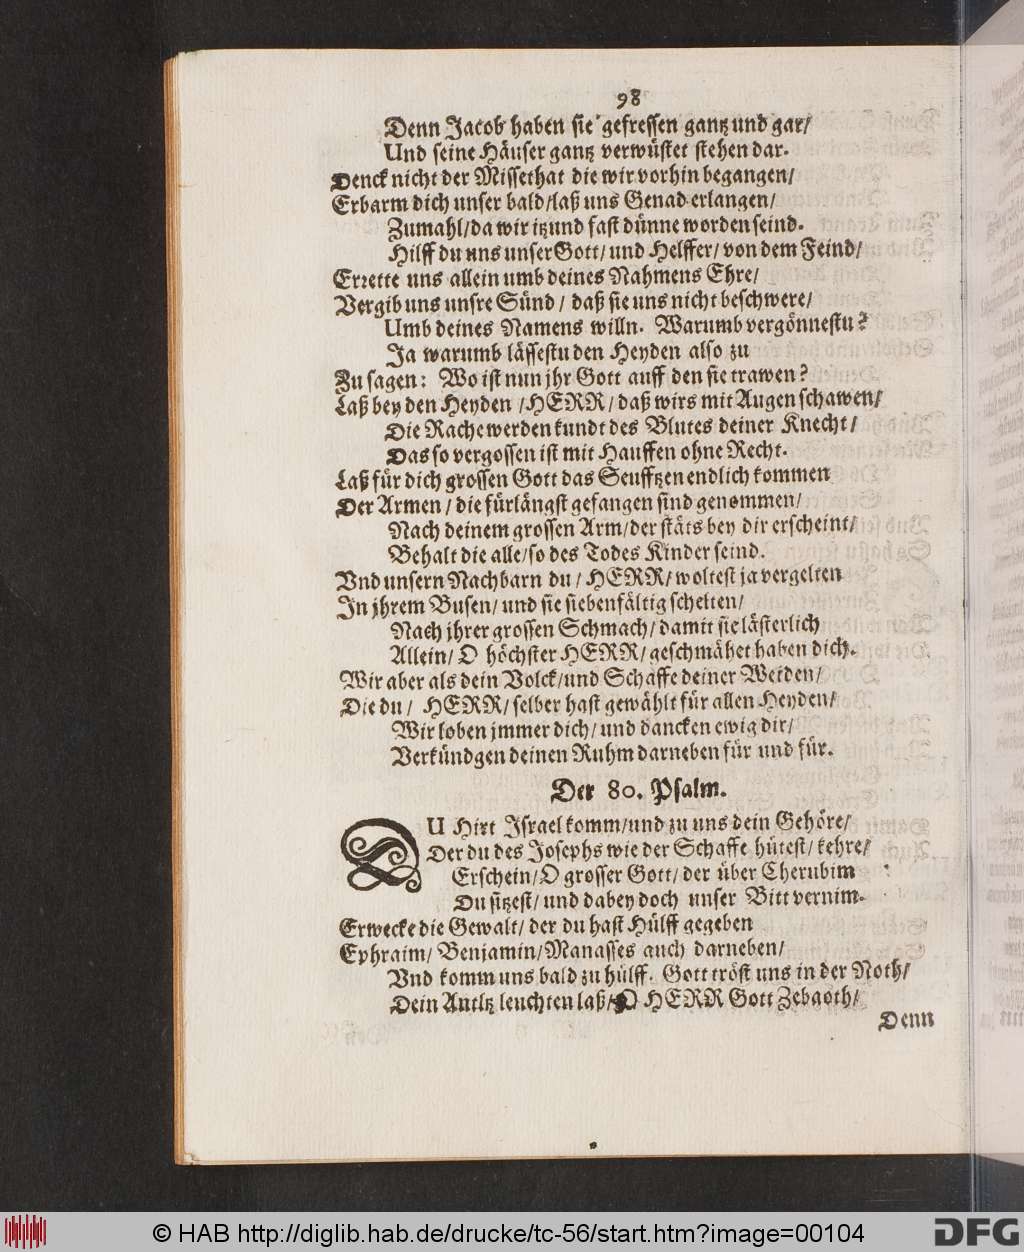 98
Denn Jacob haben sie gefressen gantz und gar/
Und seine Häuser gantz verwüstet stehen dar.
Denck nicht der Missethat die wir vorhin begangen/
Erbarm dich unser bald/laß uns Genad erlangen/
Zumahl/da wir itzund fast dünne worden seind.
Hilff du uns unser Gott/ und Helffer/ von dem Feind/
Errette uns allein umb deines Nahmens Ehre/
Vergib uns unsre Sünd/ daß sie uns nicht beschwere/
Umb deines Namens willn. Warumb vergönnestu?
Ja warumb lässestu den Heyden also zu
Zu sagen: Wo ist nun jhr Gott auff den sie trawen?
Laß bey den Heyden/HERR/ daß wirs mit Augen schawen/
Die Rache werden kundt des Blutes deiner Knecht/
Das so vergossen ist mit Hauffen ohne Recht.
Laß für dich grossen Gott das Seufftzen endlich kommen
Der Armen/ die fürlängst gefangen sind genommen/
Nach deinem grossen Arm/der stäts bey dir erscheint/
Behalt die alle/so des Todes Kinder seind.
Vnd unsern Nachbarn du/ HERR/ woltest ja vergelten
In jhrem Busen/ und sie siebenfältig schelten/
Nach jhrer grossen Schmach/ damit sie lästerlich
Allein/ O höchster HERR/ geschmähet haben dich.
Wir aber als dein Volck/und Schaffe deiner Weiden/
Die du/ HERR/ selber hast gewählt für allen Heyden/
Wir loben jmmer dich/ und dancken ewig dir/
Verkündgen deinen Ruhm darneben für und für.
Der 80. Psalm.
DU Hirt Israel komm/und zu uns dein Gehöre/
Der du des Josephs wie der Schaffe hütest/ kehre/
Erschein/O grosser Gott/ der über Cherubim
Du sitzest/ und dabey doch unser Bitt vernim.
Erwecke die Gewalt/ der du hast Hülff gegeben
Ephraim/ Benjamin/Manasses auch darneben/
Vnd komm uns bald zu hülff. Gott tröst uns in der Noth/
Dein Antlitz leuchten laß/ O HERR Gott Zebaoth/
Denn
© HAB http://diglib.hab.de/drucke/tc-56/start.htm?image=00104
DFG